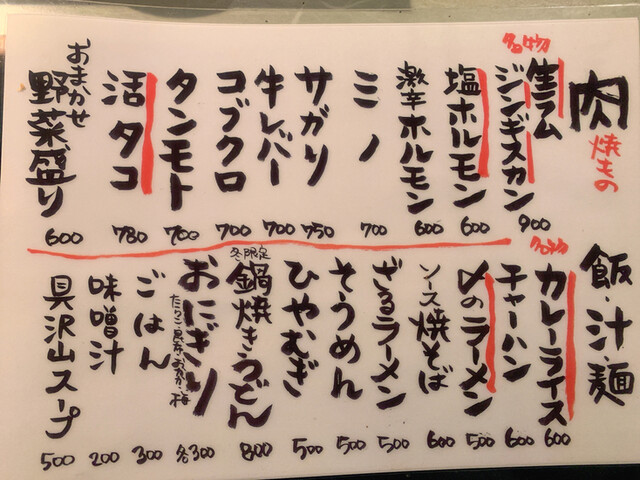 肉
焼きもの
名物
生ラム
ジンギスカン
900
塩ホルモン
600
激辛ホルモン
600
ミノ
700
サガリ
750
牛レバー
700
コブクロ
700
タンモト
700
活タコ
780
おまかせ
野菜盛り
600
飯・汁・麺
名物
カレーライス
600
チャーハン
600
〆のラーメン
500
ソース焼そば
600
ざるラーメン
500
そうめん
500
ひやむぎ
500
冬限定
鍋焼きうどん
800
おにぎり
たらこ・昆布・おかか・梅
各300
ごはん
300
味噌汁
200
具沢山スープ
500